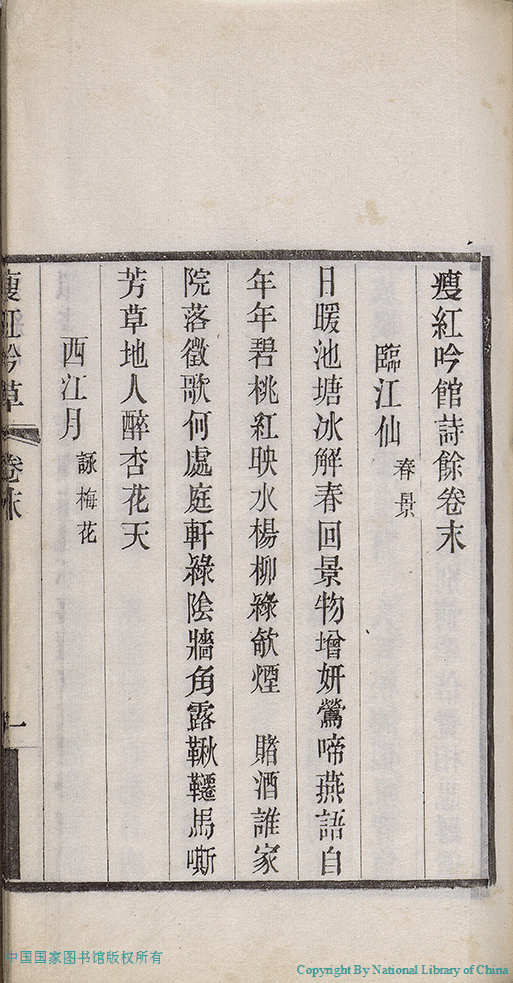 瘦紅吟館詩餘卷末
臨江仙 春景
日暖池塘冰解春回景物增妍鶯啼燕語自
年年碧桃紅映水楊柳綠欹煙　賭酒誰家
院落徵歌何處庭軒綠陰牆角露鞦韆馬嘶
芳草地人醉杏花天
西江月 詠梅花
瘦紅吟草 卷末 一
中国国家图书馆版权所有
Copyright By National Library of China